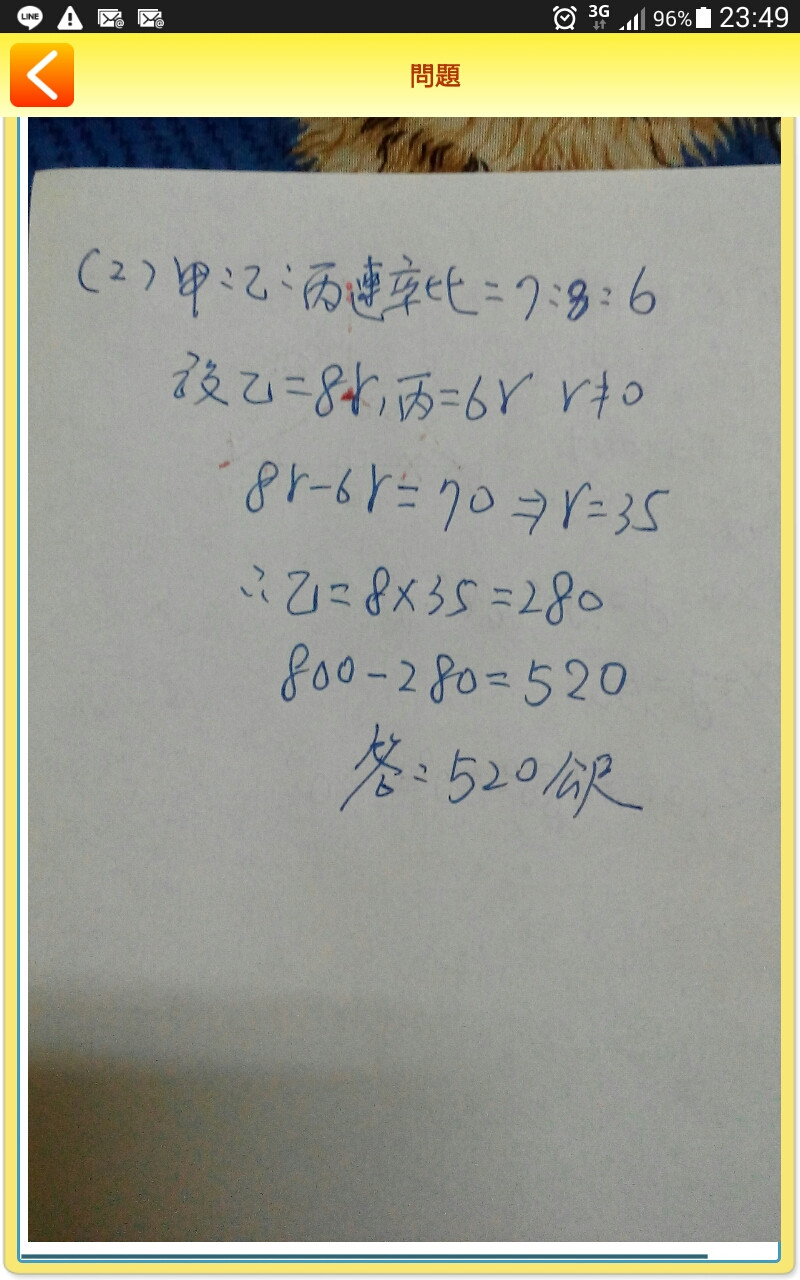 LINE 3G 96% 23:49
問題
(2) 甲:乙:丙連率比=7:8:6
設乙=8r,丙=6r r≠0
8r-6r=70⇒r=35
∴乙=8×35=280
800-280=520
答:520公尺